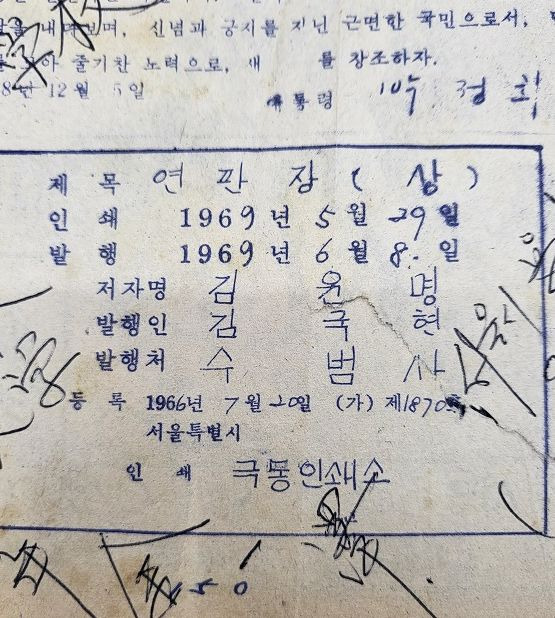 내다보며, 신념과 긍지를 지닌 근면한 국민으로서,
줄기찬 노력으로, 새 를 창조하자.
8년 12월 5일
대통령 박 정 희
제 목 연 판 장 ( 상 )
인 쇄 1969 년 5 월 29 일
발 행 1969 년 6 월 8. 일
저자명 김 윤 명
발행인 김 국 현
발행처 수 범 사
등 록 1966년 7 월 20일 (가) 제1870호
서울특별시
인 쇄 극동인쇄소
50